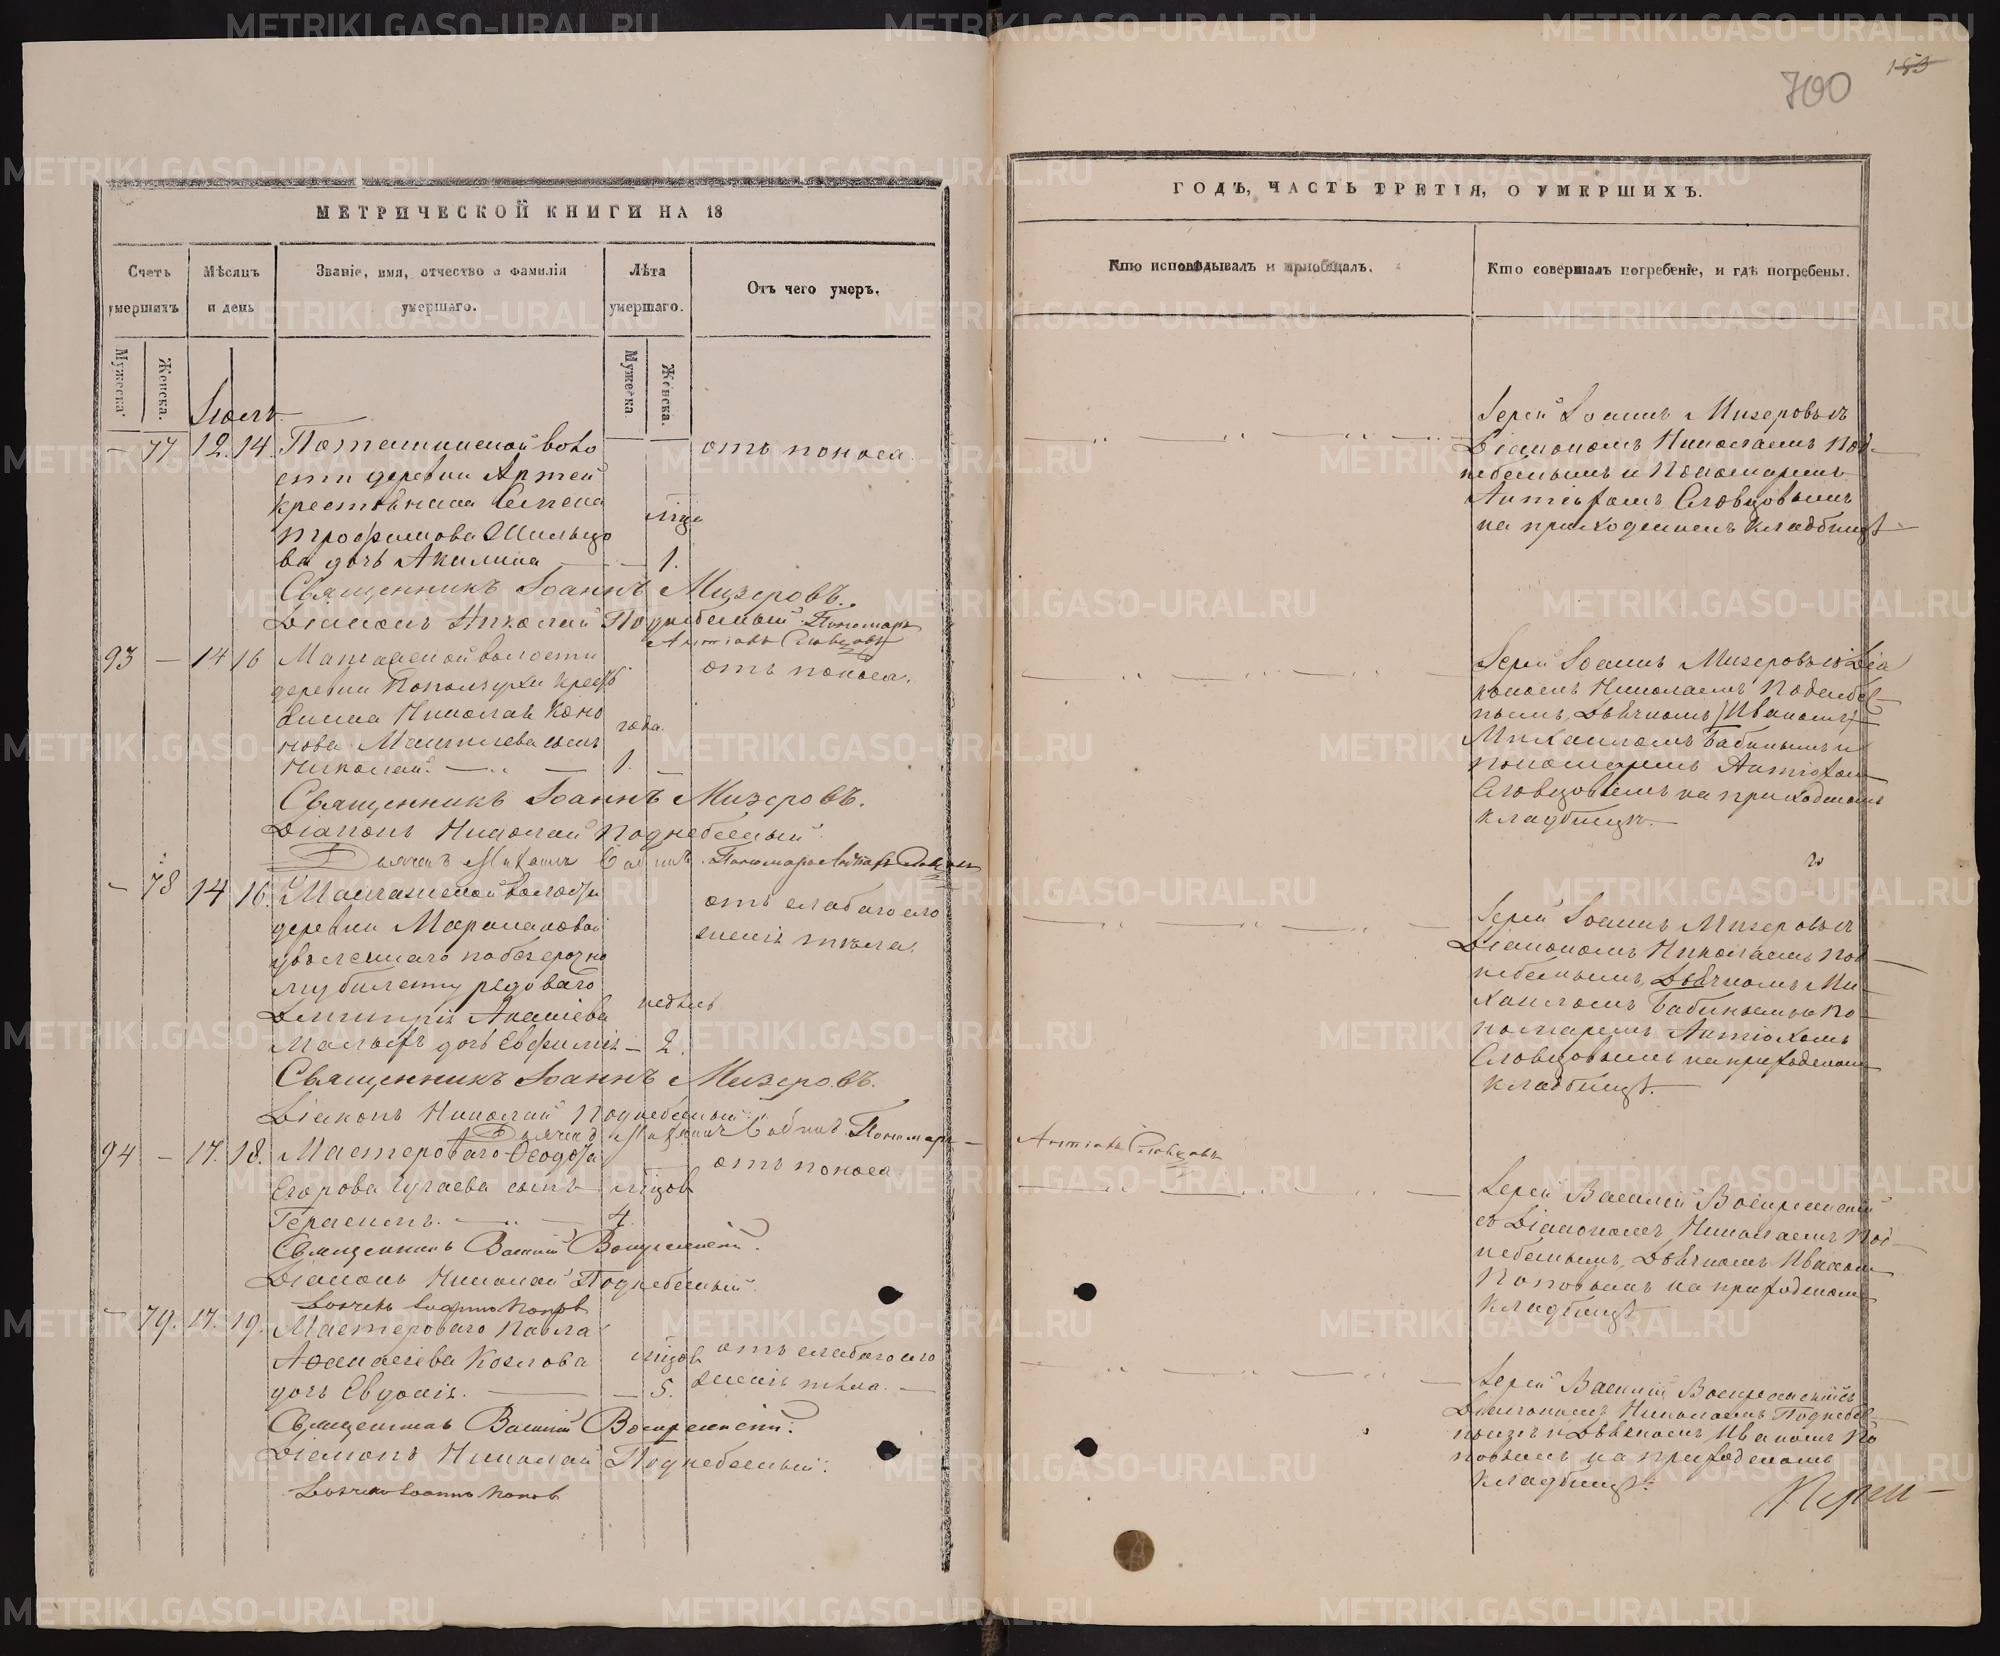 700
МЕТРИЧЕСКОЙ КНИГИ НА 18
ГОДЪ, ЧАСТЬ ТРЕТІЯ, О УМЕРШИХЪ.
Счетъ умершихъ
Мѣсяцъ и день
Званіе, имя, отчество и фамилія умершаго.
Лѣта умершаго.
Отъ чего умеръ.
Кто исповѣдывалъ и пріобщалъ.
Кто совершалъ погребеніе, и гдѣ погребены.
Мужеска.
Женска.
Мужеска
Женска.
Іюль
— 77 12. 14.
воло
сти деревни Артей
крестьянина Семена
Трофимова
ва дочь Акилина — 1.
отъ поноса.
Іерей Іоаннъ Мизеровъ съ
Діакономъ Николаемъ Под-
небеснымъ и Пономаремъ
Антіохомъ Словцовымъ
на приходскомъ кладбищѣ
Священникъ Іоаннъ Мизеровъ.
Діаконъ Николай Поднебесный. Пономарь
Антіохъ Словцовъ
93 — 14 16
волости
деревни
Николая Коно
нова сынъ
Николай. — 1.
года.
отъ поноса.
Іерей Іоаннъ Мизеровъ съ Діа
кономъ Николаемъ Поднебес-
нымъ, Дьячкомъ
Михаиломъ Бабинымъ и
пономаремъ Антіохом
Словцовымъ на приходскомъ
кладбищѣ.
Священникъ Іоаннъ Мизеровъ.
Діаконъ Николай Поднебесный
Дьячекъ Михаилъ Бабинъ. Пономарь Антіохъ Словцовъ
— 78 14 16.
деревни
уволеннаго по безсрочно
му билету рядоваго
Димитрія
дочь Евфимія — 2.
недѣль
отъ слабаго сло
женія тѣла.
Іерей Іоаннъ Мизеровъ съ
Діакономъ Николаемъ Под-
небеснымъ, Дьячкомъ Ми-
хаиломъ Бабинымъ и По-
номаремъ Антіохомъ
Словцовымъ на приходском
кладбищѣ.
Священникъ Іоаннъ Мизеровъ.
Діаконъ Николай Поднебесный.
Дьячекъ Михаилъ Бабинъ Пономарь
Антіохъ Словцовъ
94 — 17. 18.
Мастероваго
Егорова сынъ
Герасимъ. — 4.
отъ поноса
Іерей Василій Воскресенскій
съ Діакономъ Николаемъ Под-
небеснымъ, Дьячкомъ Иваном
Поповымъ на приходском
кладбищѣ
Священникъ Василій Воскресенскій.
Діаконъ Николай Поднебесный.
Дьячекъ Іоаннъ Поповъ
— 79. 17. 19.
Мастероваго Павла
Козлова
дочь Евдокія. — 5.
отъ слабаго сло
женія тѣла. —
Іерей Василій Воскресенскій съ
Діакономъ Николаемъ Поднебес-
нымъ и Дьячкомъ Иваномъ По
повымъ на приходскомъ
кладбищѣ.
Священникъ Василій Воскресенскій.
Діаконъ Николай Поднебесный.
Дьячекъ Іоаннъ Поповъ
METRIKI.GASO-URAL.RU